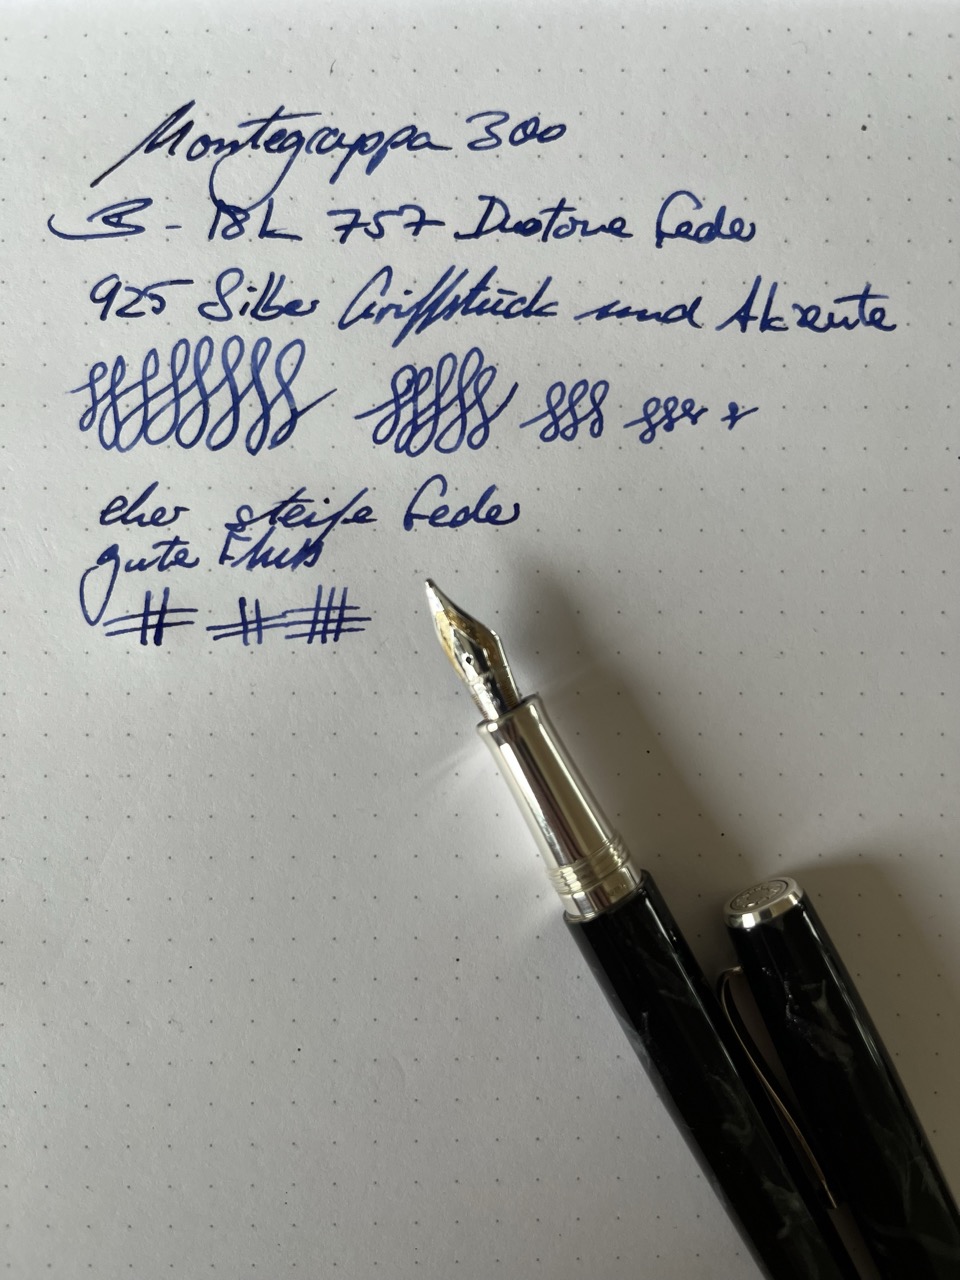 Montegrappa 300
B - 18k 757 Duotone Feder
925 Silber Griffstück und Akzente
eher steife Feder
guter Fluss